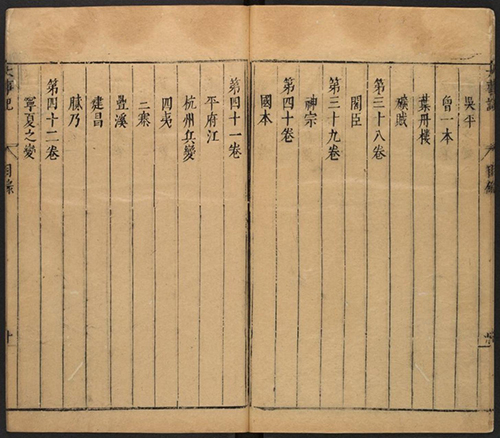 吳平
曾一本
葉丹樓
礦賊
第三十八卷
閣臣
第三十九卷
神宗
第四十卷
國本
第四十一卷
平府江
杭州兵變
四夷
三寨
疊溪
建昌
膩乃
第四十二卷
寧夏之變
目錄
十